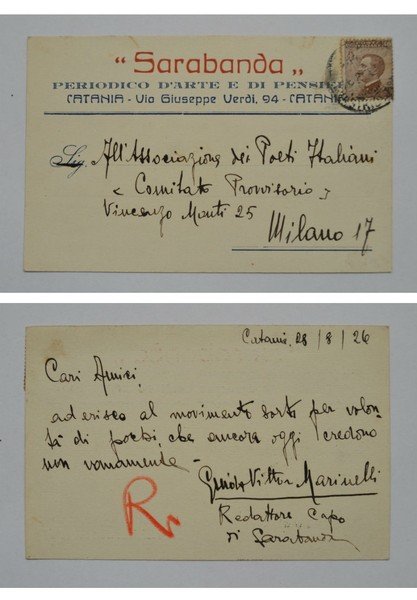 "Sarabanda„
PERIODICO D'ARTE E DI PENSIE
CATANIA - Via Giuseppe Verdi, 94 - CATANI
Sig. All'Associazione dei Poeti Italiani
« Comitato Provvisorio »
Vincenzo Monti 25
Milano 17
Catania, 28/8/26
Cari Amici,
aderisco al movimento sorto per volon-
tà di poeti, che ancora oggi credono
non vanamente -
Guido Vittor Marinelli
Redattore Capo
di Sarabanda
R